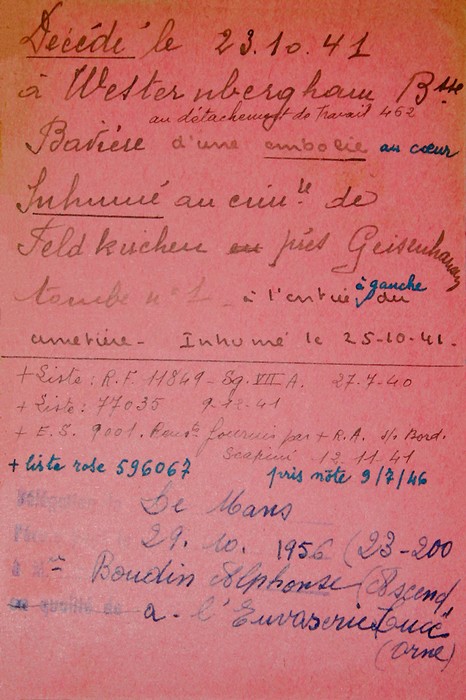 Décédé le 23.10.41
à Westernbergham Bsse
au détachement de Travail 462
Bavière d'une embolie au cœur
Inhumé au cimre de
Feldkirchen en près Geisenhausen
tombe n° 1 - à l'entrée à gauche du
cimetière - Inhumé le 25-10-41.
+ Liste : R.F. 11849 - Sg. VII A. 27.7-40
+ Liste : 77035 9-12-41
+ E.S. 9001. fournis par + R.A. s/o Bord.
Scapini 12.11.41
+ liste rose 596067 pris note 9/7/46
Délégation Le Mans
29. 10. 1956 (23-200
à Mr Boudin Alphonse (Ascend,
en qualité de a. l'Euvaserie
(Orne)